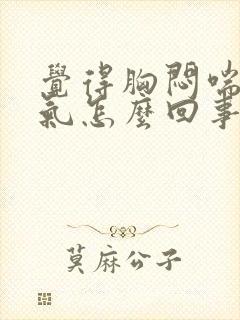 覺得胸悶喘
氣怎麼回事
莫麻公子